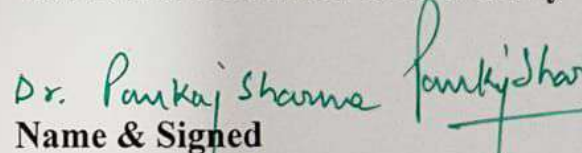 Dr. Pankaj Sharma Pankjshar
Name & Signed